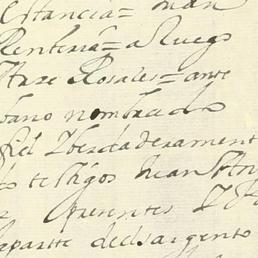 Estancia= Juan
Renteria= a Ruego
Rosales= ante
bano nombrado
fiel Verdaderament
testigos Juan
presentes
aparte del sargento